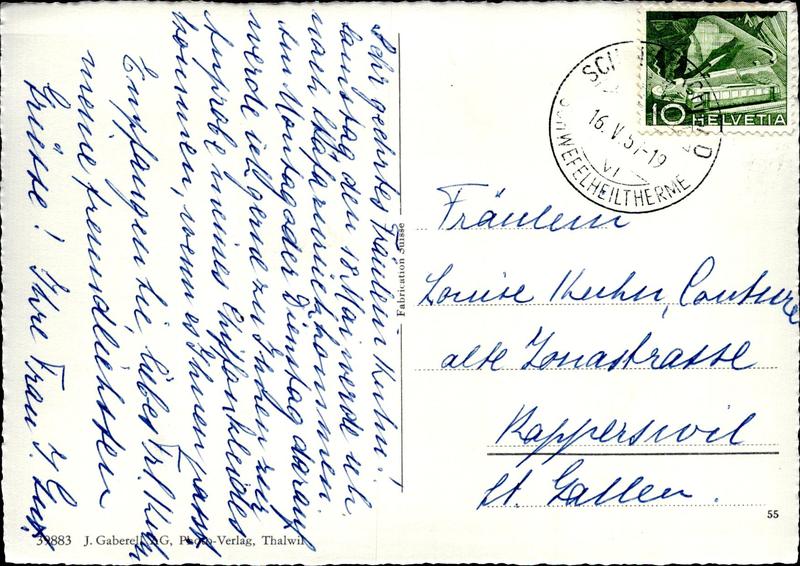 Sehr geehrtes Fräulein Kuhn!
Samstag den 18 Mai werde ich
nach Stäfa zurückkommen.
Am Montag oder Dienstag darauf
werde ich gerne zu Ihnen zur
Anprobe meines Chiffonkleides
kommen, wenn es Ihnen passt
Empfangen Sie, liebes Frl. Kuhn
meine freundlichsten
Grüsse! Ihre Frau
Fabrication Suisse
HELVETIA
10
16. V. 57-19
SCHWEFELHEILTHERME
Fräulein
Louise Kuhn, Couture
alte Jonastrasse
Rapperswil
St. Gallen.
55
39883 J. Gaberell AG, Photo-Verlag, Thalwil